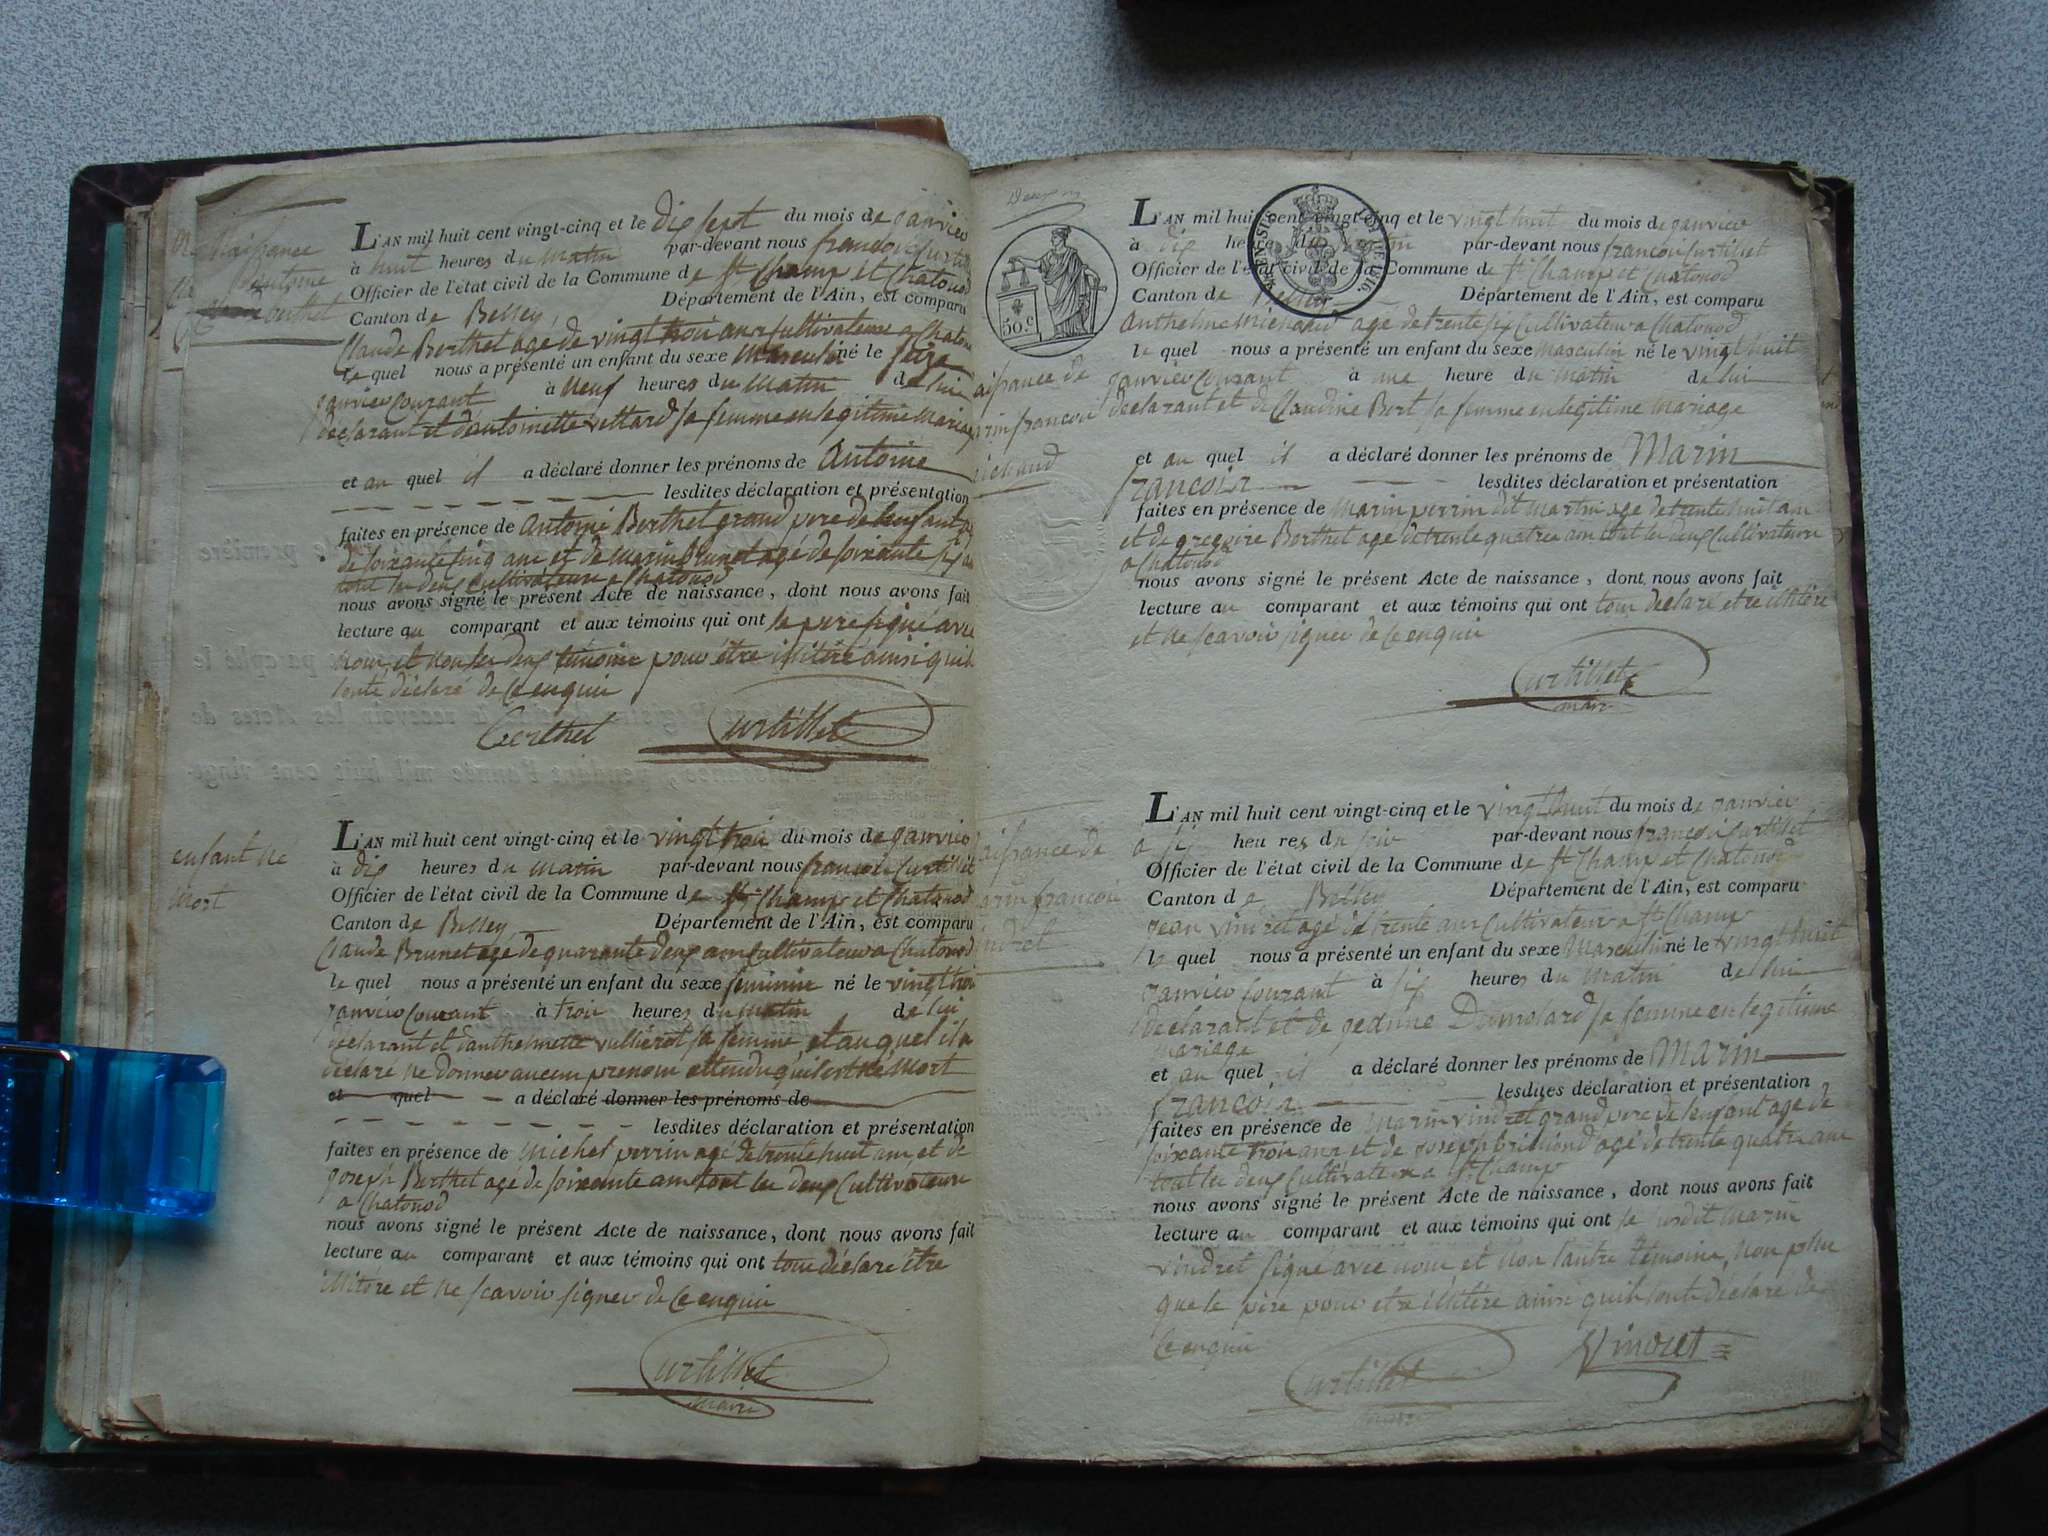 Naissance
Antoine
Berthet
L'AN mil huit cent vingt-cinq et le dix sept du mois de janvier
à huit heures du matin par-devant nous francois Curtillet
Officier de l'état civil de la Commune de St Champ et Chatonod
Canton de Belley, Département de l'Ain, est comparu
Claude Berthet agé de vingt troi ans Cultivateur a Chatonod
le quel nous a présenté un enfant du sexe masculin né le seize
janvier Courant à neuf heures du matin de lui
declarant et d'antoinette vettard sa femme en legitime mariage
et au quel il a déclaré donner les prénoms de Antoine
lesdites déclaration et présentation
faites en présence de Antoine Berthet grand pere de lenfant agé
de soixante cinq ans et de marin Brunet agé de soixante six ans
tout les deux Cultivateurs a Chatonod
nous avons signé le présent Acte de naissance, dont nous avons fait
lecture au comparant et aux témoins qui ont le pere signé avec
nous et non les deux témoins pour être illitéré ainsi quil
lonté déclaré de Ce enquis
Berthet Curtillet
enfant né
mort
L'AN mil huit cent vingt-cinq et le vingt troi du mois de janvier
à dix heures du matin par-devant nous francois Curtillet
Officier de l'état civil de la Commune de St Champ et Chatonod
Canton de Belley Département de l'Ain, est comparu
Claude Brunet agé de quarante deux ans Cultivateur a Chatonod
le quel nous a présenté un enfant du sexe feminin né le vingt troi
janvier Courant à troi heures du matin de lui
declarant et danthelmette vullierot sa femme, et au quel il a
déclaré ne donner aucun prenom attendu quil est né mort
et quel a déclaré donner les prénoms de
lesdites déclaration et présentation
faites en présence de michel perrin agé de trente huit ans, et de
joseph Berthet agé de soixante ans tout les deux Cultivateurs
a Chatonod
nous avons signé le présent Acte de naissance, dont nous avons fait
lecture au comparant et aux témoins qui ont tous déclaré être
illitéré et ne scavoir signer de Ce enquis
Curtillet
maire
50.c
aissance de
arin francois
ichaud
L'AN mil huit cent vingt-cinq et le vingt huit du mois de janvier
à dix heures du matin par-devant nous francois Curtillet
Officier de l'état civil de la Commune de St Champ et Chatonod
Canton de Belley Département de l'Ain, est comparu
Anthelme michaud agé de trente six Cultivateur a Chatonod
le quel nous a présenté un enfant du sexe masculin né le vingt huit
janvier Courant à une heure du matin de lui
declarant et de Claudine Bort sa femme en legitime mariage
et au quel il a déclaré donner les prénoms de Marin
francois lesdites déclaration et présentation
faites en présence de marin perrin dit martin agé de trente huit ans
et de gregoire Berthet agé de trente quatre ans tout les deux Cultivateurs
a Chatonod
nous avons signé le présent Acte de naissance, dont nous avons fait
lecture au comparant et aux témoins qui ont tous déclaré etre illitéré
et ne scavoir signer de Ce enquis
Curtillet
maire
aissance de
arin francois
indret
L'AN mil huit cent vingt-cinq et le vingt huit du mois de janvier
à six heures du soir par-devant nous francois Curtillet
Officier de l'état civil de la Commune de St Champ et Chatonod
Canton de Belley Département de l'Ain, est comparu
jean vindret agé de trente ans Cultivateur a St Champ
le quel nous a présenté un enfant du sexe Masculin né le vingt huit
janvier Courant à six heures du matin de lui
declarant et de jeanne Dumolard sa femme en legitime
mariage
et au quel il a déclaré donner les prénoms de Marin
francois lesdites déclaration et présentation
faites en présence de marin vindret grand pere de lenfant agé de
soixante troi ans et de joseph brillond agé de trente quatre ans
tout les deux Cultivateurs a St Champ
nous avons signé le présent Acte de naissance, dont nous avons fait
lecture au comparant et aux témoins qui ont le susdit marin
vindret signé avec nous et non lautre témoins, non plus
que le père pour etre illitéré ainsi quil lonté déclaré de
Ce enquis
Curtillet Vindret
maire